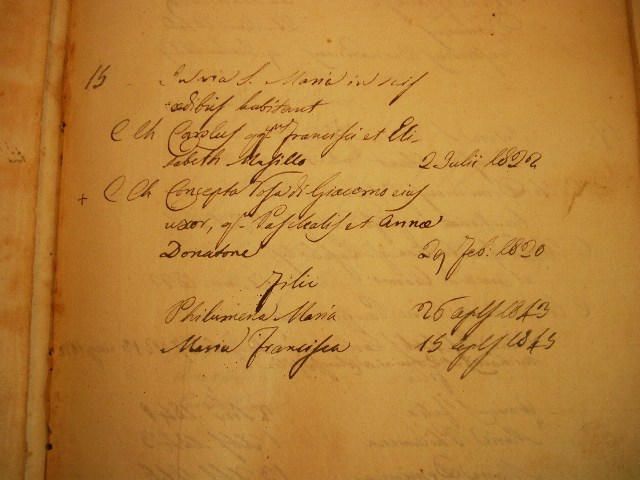 15 In via S. Maria in suis
ædibus habitant
C Ch Carolus qm Francisci et Eli-
sabeth Masillo 2 Julii 1822
+ C Ch Concepta Tosa di Giacomo eius
uxor, q. Paschalis et Annæ
Donatone 29 Feb: 1820
Filii
Philumena Maria 26 aplis 1843
Maria Francisca 15 aplis 1845